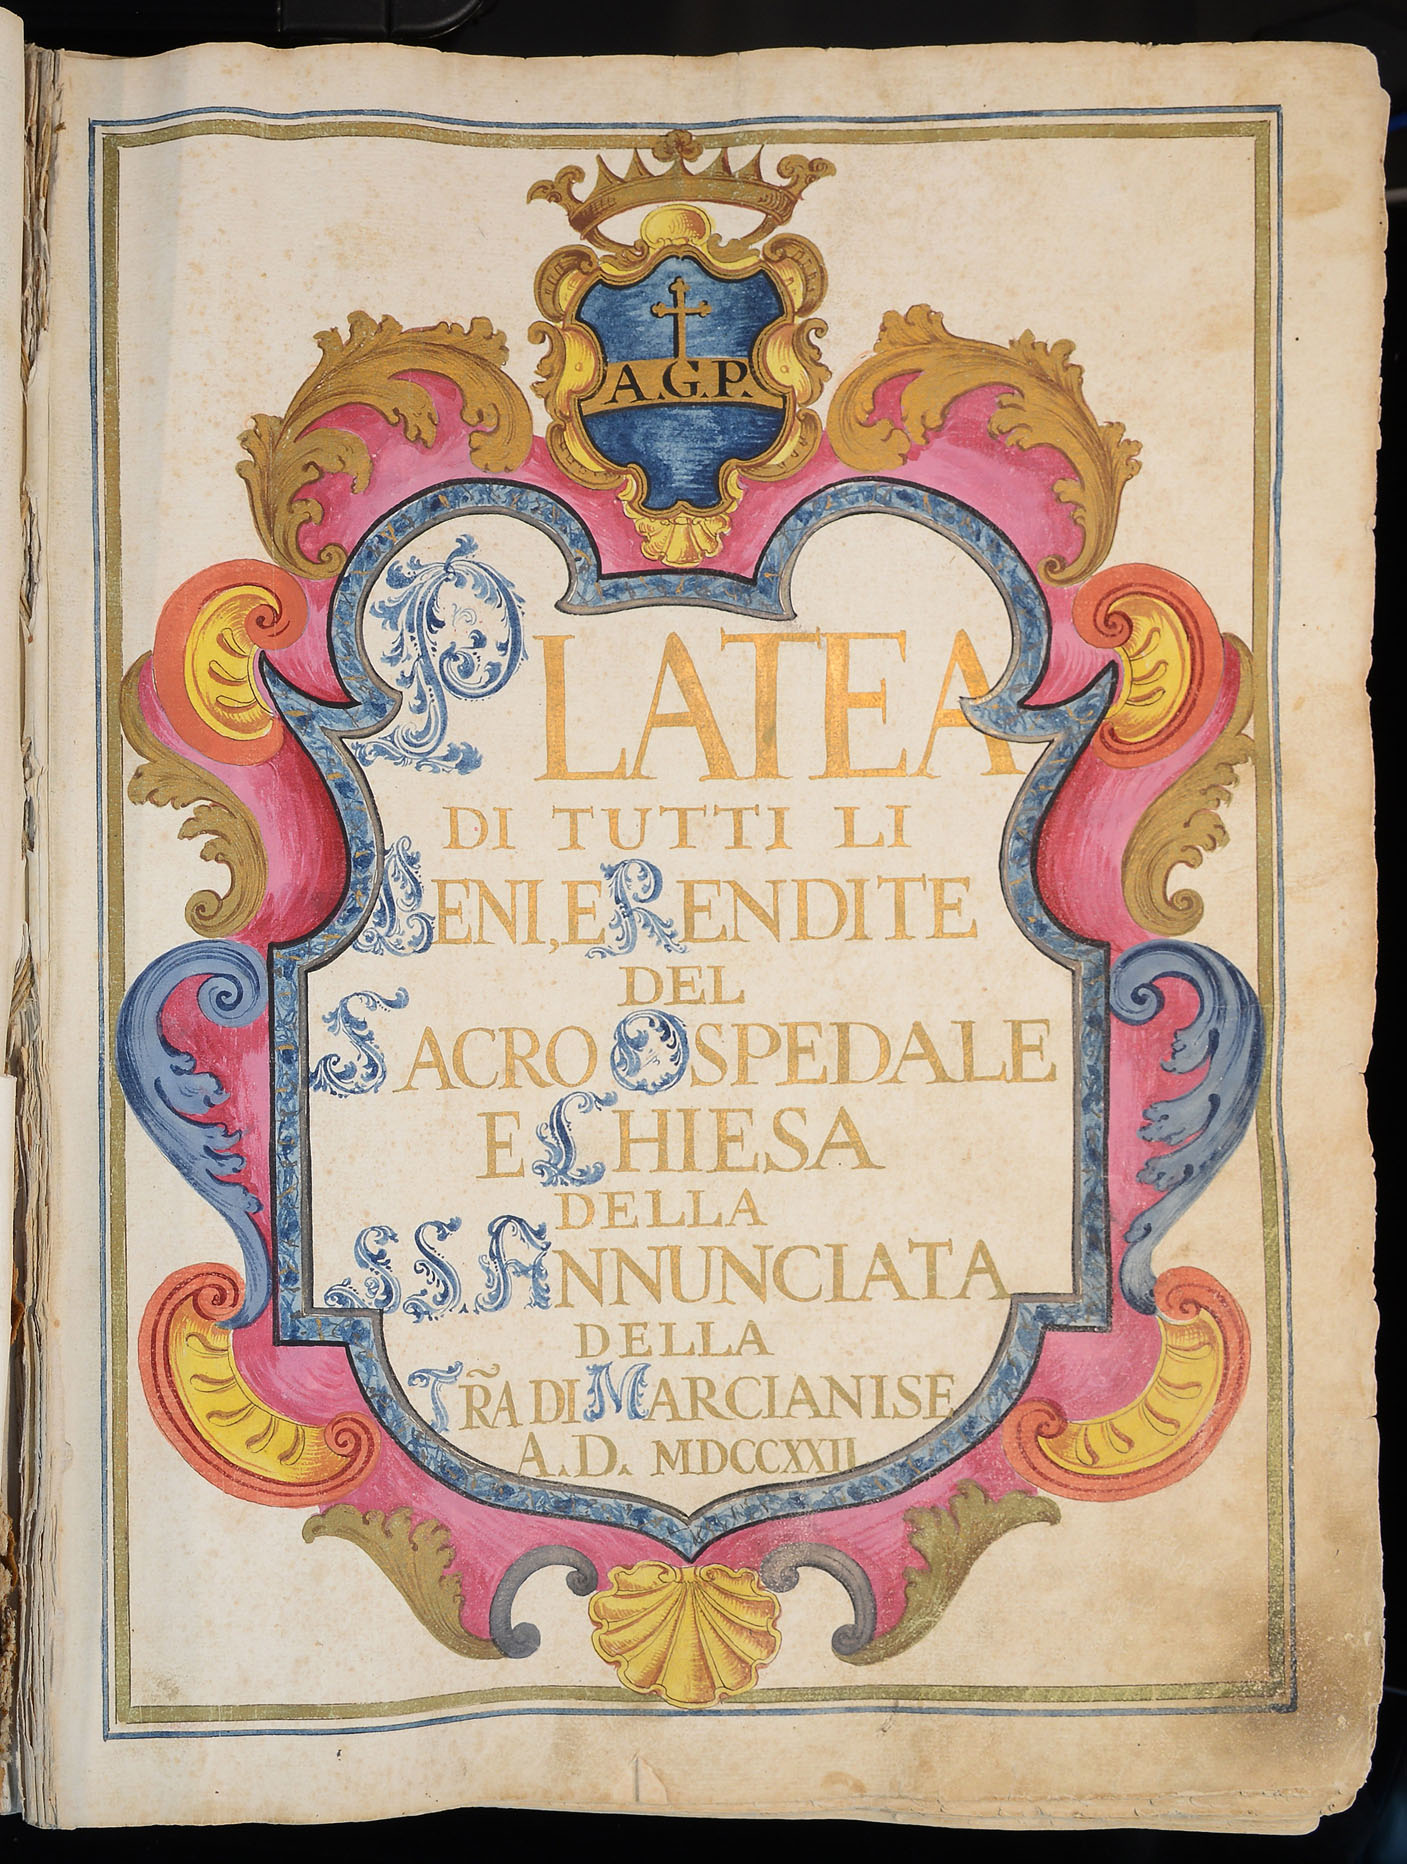 A.G.P.
PLATEA
DI TUTTI LI
BENI, E RENDITE
DEL
SACRO OSPEDALE
E CHIESA
DELLA
SS. ANNUNCIATA
DELLA
TR̃A DI MARCIANISE
A.D. MDCCXXII